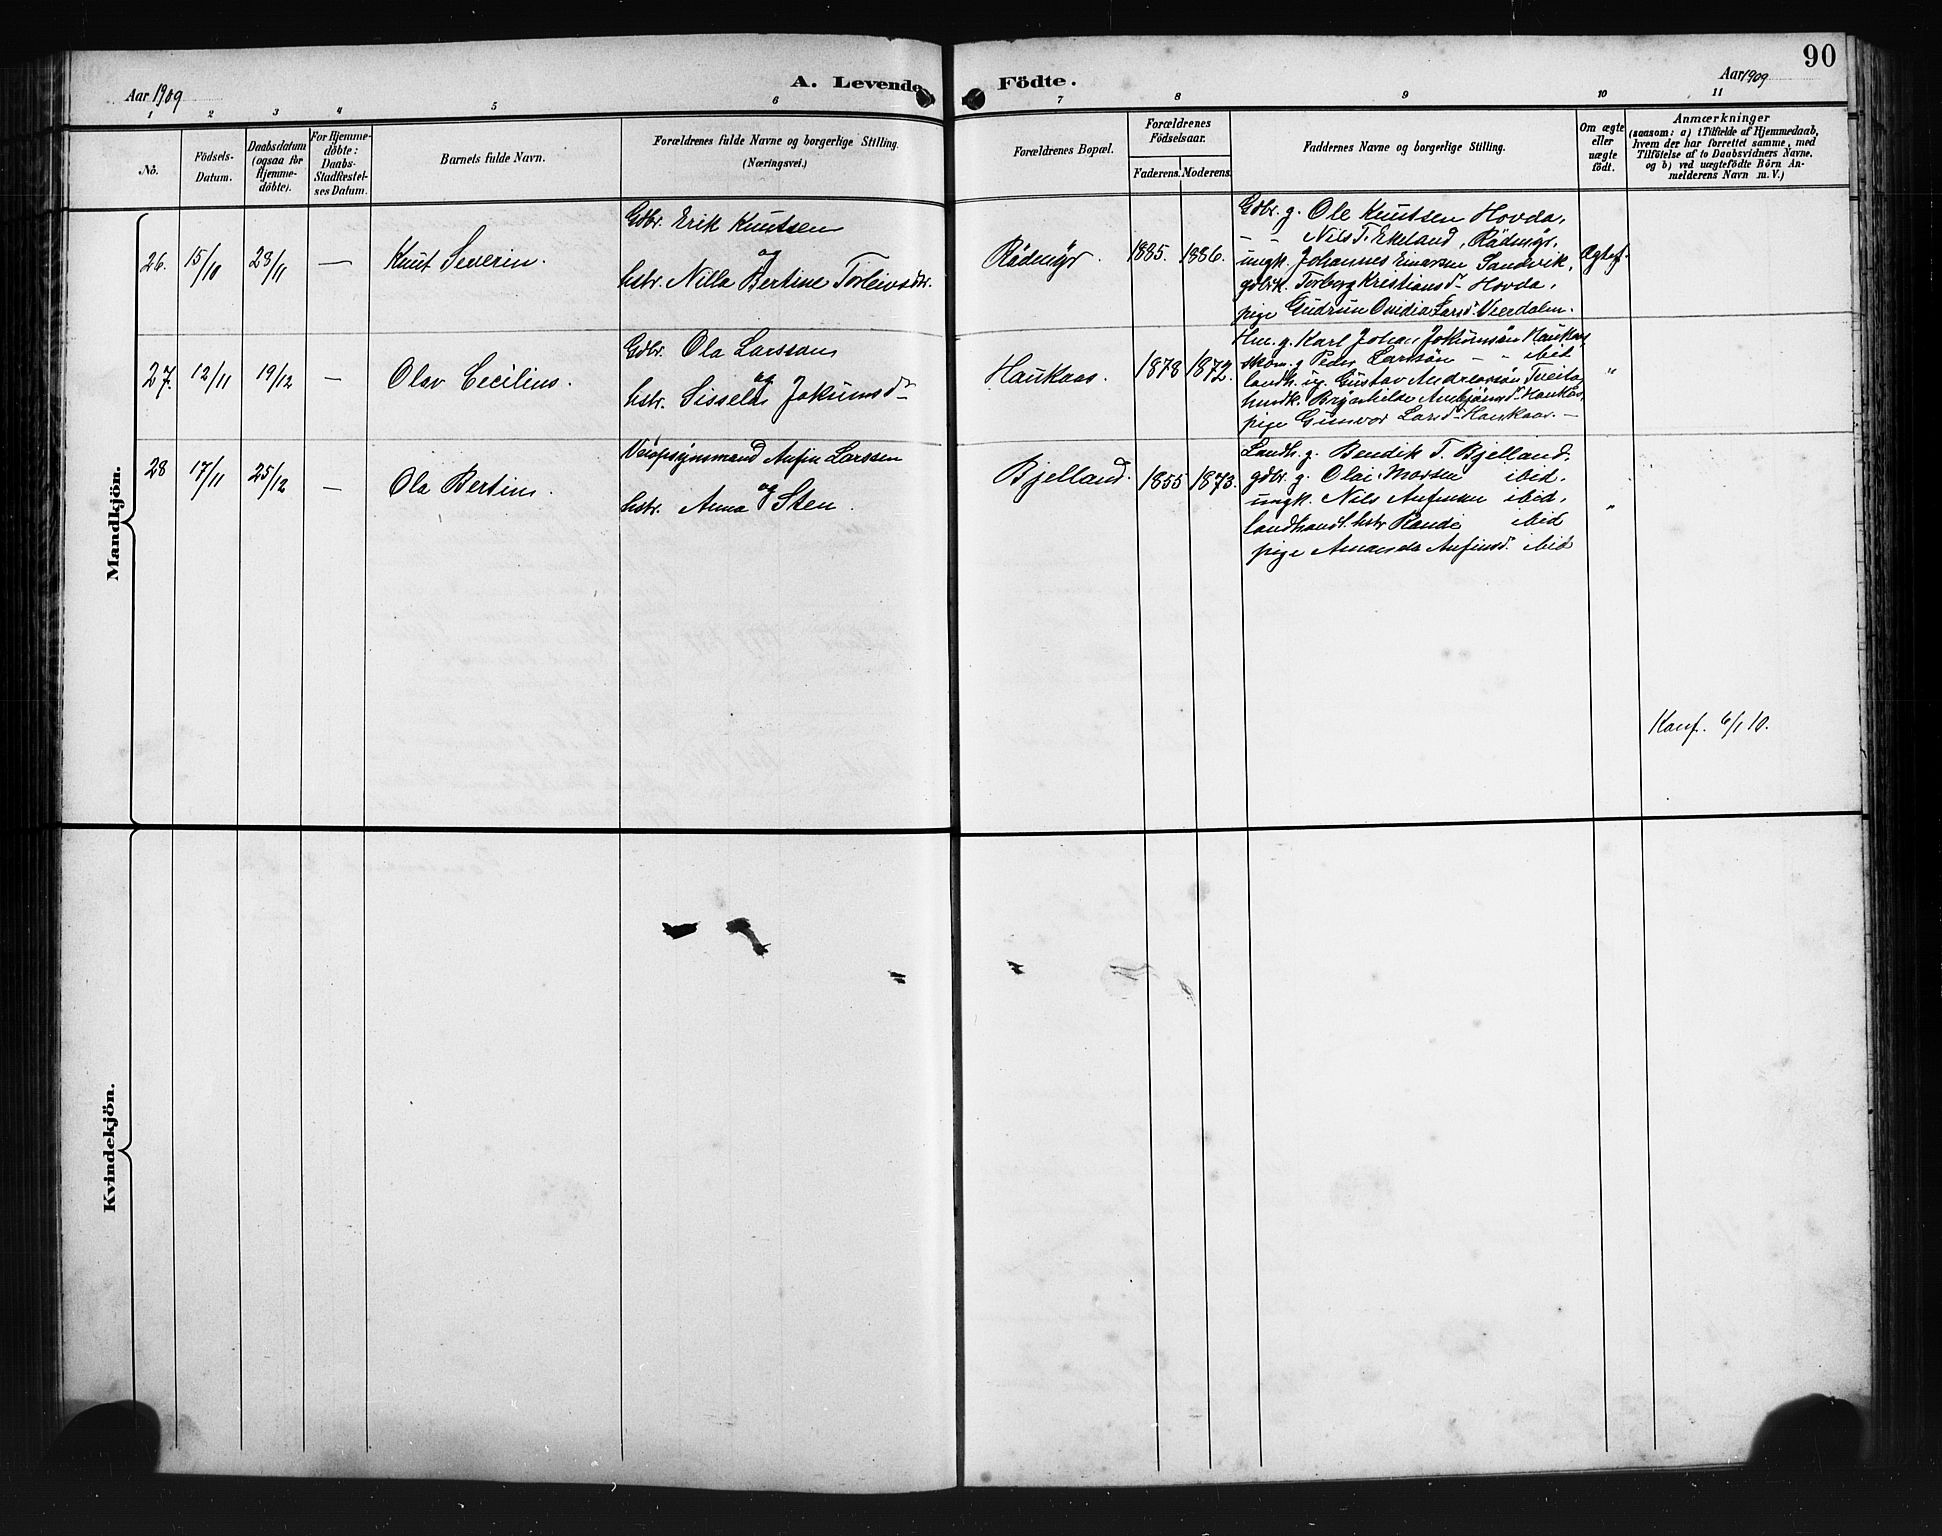 90
Aar 1909
A. Levende Födte.
Aar 1909
1 2 3 4 5 6 7 8 9 10 11
No.
Födsels-
Datum.
Daabsdatum
(ogsaa for
Hjemme-
döbte).
For Hjemme-
döbte:
Daabs-
Stadfæstel-
ses Datum.
Barnets fulde Navn.
Forældrenes fulde Navne og borgerlige Stilling.
(Næringsvei.)
Forældrenes Bopæl.
Forældrenes
Födselsaar.
Faderens. Moderens.
Faddernes Navne og borgerlige Stilling.
Om ægte
eller
uægte
födt.
Anmærkninger
(saasom: a) i Tilfælde af Hjemmedaab,
hvem der har forrettet samme, med
Tilföielse af to Daabsvidners Navne,
og b) ved uægtefödte Börn An-
melderens Navn m. V.)
Mandkjön.
26. 15/10 23/11 — Knut Severin.
Gdbr. Erik Knutsen
og
hstr. Nilla Bertine Torleivsdtr.
Rödmyr. 1885. 1886.
Gdbr. g. Ole Knutsen Hovda,
— — Nils T. Ekeland, Rödmyr.
ungk. Johannes Einarsen Sandvik,
gdbrk. Torborg Kristiansd- Hovda,
pige Gudrun Ovidia Larsd. Veerdalen.
Ægtef.
27. 12/11 19/12 — Olav Cecilius.
Gdbr. Ola Larssen
og
hstr. Sissela Jokumsd-
Haukaas. 1878 1872.
Hm. g. Karl Johan Jokumsön Haukaas,
skom. g Peder Larssön — " ibid
landh. ug. Gustav Andreassön Tveita,
husdk. Brynhilde Ambjörnsd- Haukaas,
pige Gunvor Larsd- Haukaas. —
"
28 17/11 25/12 — Ola Bertin.
Veiopsynsmand Anfin Larssen
og
hstr. Anna Sten.
Bjelland. 1855 1873.
Landh. g. Bendik T. Bjelland.
gdbr. g. Olai Monsen ibid.
ungk. Nils Anfinsen ibid.
landhandl. hstr Randi ibid
pige Amanda Anfinsd. ibid
"
Konf. 6/1 10.
Kvindekjön.